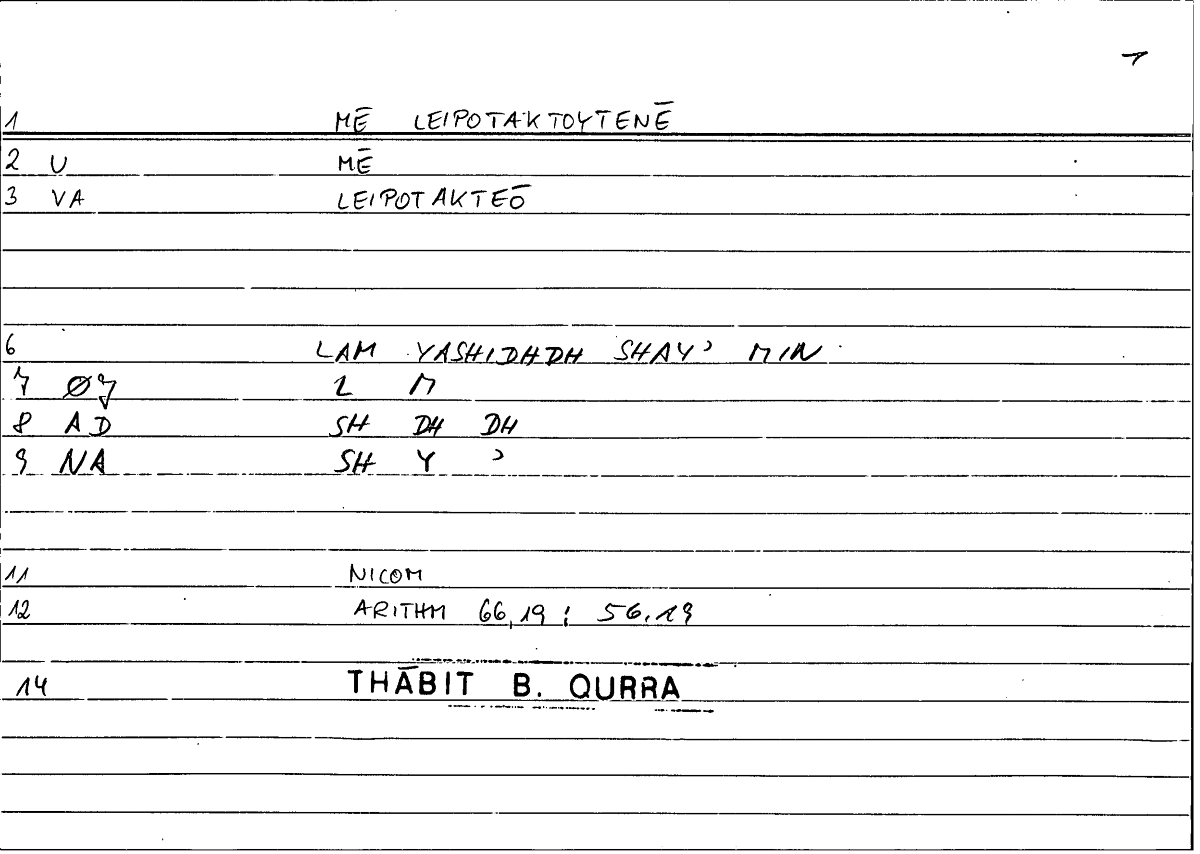 1
1 MĒ LEIPOTAKTOYTENĒ
2 U MĒ
3 VA LEIPOTAKTEŌ
6 LAM YASHIDHDH SHAYʾ MIN
7 Ø7 L M
8 AD SH DH DH
9 NA SH Y ʾ
11 NICOM
12 ARITHM 66,19 ; 56,19
14 THĀBIT B. QURRA